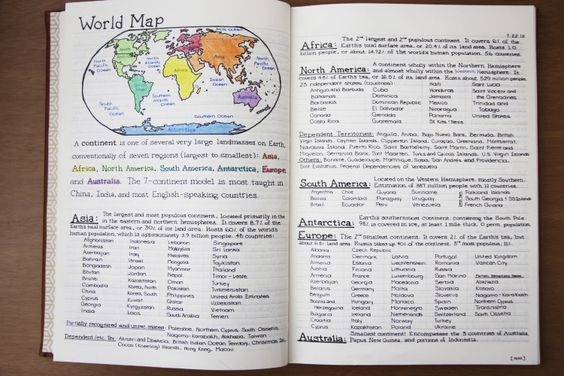 World Map
Arctic Ocean
Arctic Ocean
Europe
Asia
North America
North Pacific Ocean
North Atlantic Ocean
Africa
South America
Indian Ocean
South Pacific Ocean
South Atlantic Ocean
Australia
Southern Ocean
Antarctica
A continent is one of several very large landmasses on Earth,
conventionally of seven regions (largest to smallest): Asia,
Africa, North America, South America, Antarctica, Europe,
and Australia. The 7-continent model is most taught in
China, India, and most English-speaking countries.
Asia: The largest and most populous continent. Located primarily in the
in the eastern and northern hemispheres. It covers 8.7% of the
Earth's total surface area, or 30% of its land area. Hosts 60% of the world's
human population, which is approximately 3.9 billion people. 48 countries:
Afghanistan Indonesia Lebanon Singapore
Armenia Iran Malaysia Sri Lanka
Azerbaijan Iraq Maldives Syria
Bahrain Israel Mongolia Tajikistan
Bangladesh Japan Myanmar Thailand
Bhutan Jordan Nepal Timor-Leste
Brunei Kazakhstan Oman Turkey
Cambodia Korea, North Pakistan Turkmenistan
China Korea, South Philippines United Arab Emirates
Cyprus Kuwait Qatar Uzbekistan
Georgia Kyrgyzstan Russia Vietnam
India Laos Saudi Arabia Yemen
Partially recognized and unrecognized: Palestine, Northern Cyprus, South Ossetia,
Nagorno-Karabakh, Abkhazia, Taiwan
Dependent Terr. British Indian Ocean Territory, Christmas
Cocos (Keeling) Islands, Hong Kong, Macau
7.22.18
Africa: The 2nd largest and 2nd populous continent. It covers 6% of the
Earth's total surface area, or 20.4% of its land area. Hosts 1.0
billion people, or about 14.72% of the world's human population. 56 countries.
North America: A continent wholly within the Northern Hemisphere
and almost wholly within the Western Hemisphere. It
covers 4.8% of Earth's area, or 16.5% of its land area. Hosts about 529 million people.
23 independent states (countries):
Antigua and Barbuda Cuba Honduras Saint Vincent and
Bahamas Dominica Jamaica the Grenadines
Barbados Dominican Republic Mexico Trinidad and
Belize El Salvador Nicaragua Tobago
Canada Grenada Panama United States
Costa Rica Guatemala St. Kitts/Nevis
Dependent Territories: Anguilla, Aruba, Bermuda, British
Virgin Islands, Cayman Islands, Clipperton Island, Curaçao, Greenland, Montserrat,
Navassa Island, Puerto Rico, Saint Barthélemy, Saint Martin, Saint Pierre and
Miquelon, Turks and Caicos Islands, U.S. Virgin Islands
Others: Bonaire, Guadeloupe, Martinique, Saba, San Andrés and Providencia,
Sint Eustatius, Federal Dependencies of Venezuela
South America: Located on the Western Hemisphere, mostly Southern.
Estimation of 387 million people, with 12 countries.
Argentina Chile Guyana Suriname Falkland Islands
Bolivia Colombia Paraguay Uruguay South Georgia
Brazil Ecuador Peru Venezuela
Antarctica: Earth's southernmost continent, containing the South Pole.
98% is covered in ice, at least 1 mile thick. 0 perm. population.
Europe: The 2nd smallest continent. It covers 2% of the Earth's surface, but
about 6.8% land area. Russia takes up 40% of the continent. 3rd most populous, 11%.
Albania Czech Republic
Andorra Denmark Latvia Portugal United Kingdom
Armenia Estonia Liechtenstein Romania Vatican City
Austria Finland Lithuania Russia
Azerbaijan France Luxembourg San Marino
Belarus Germany Malta Slovakia
Belgium Greece Moldova Slovenia Nagorno-Karabakh
Hungary Monaco Spain
Norway
Cyprus Kazakhstan Poland Ukraine
Australia: Smallest continent. Encompasses the 3 countries of Australia,
Papua New Guinea, and portions of Indonesia.